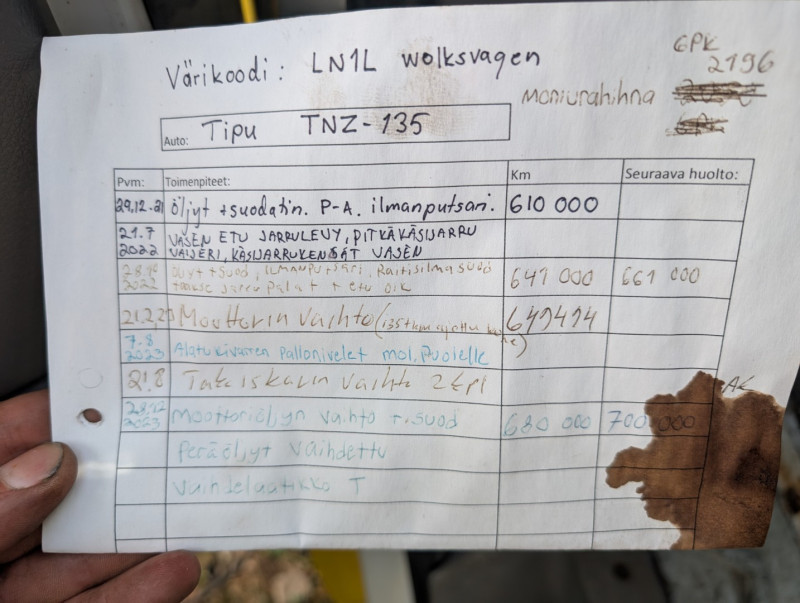 Värikoodi: LN1L wolksvagen
Moniurahihna
6PK
2196
Auto: Tipu TNZ-135
Pvm: Toimenpiteet: Km Seuraava huolto:
29.12.21 öljyt + suodatin. P-A. ilmanputsari. 610 000
21.7 VASEN ETU JARRULEVY, PITKÄ KÄSIJARRU
2022 VAIJERI, KÄSIJARRUKENGÄT VASEN
öljyt + suod, ILMANPUTSARI, Raitisilma suod 641 000 661 000
2022 taakse jarru palat + etu oik
21.2.23 Moottorin vaihto (135 tkm ajettu 649494
7.8
2023 Alatukivarren Pallonivelet mol. Puolelle
21.8 Takaiskarin vaihto 2 kpl
2023 Moottoriöljyn vaihto + suod 680 000 700 000
AK
Peräöljyt vaihdettu
Vaihdelaatikko T